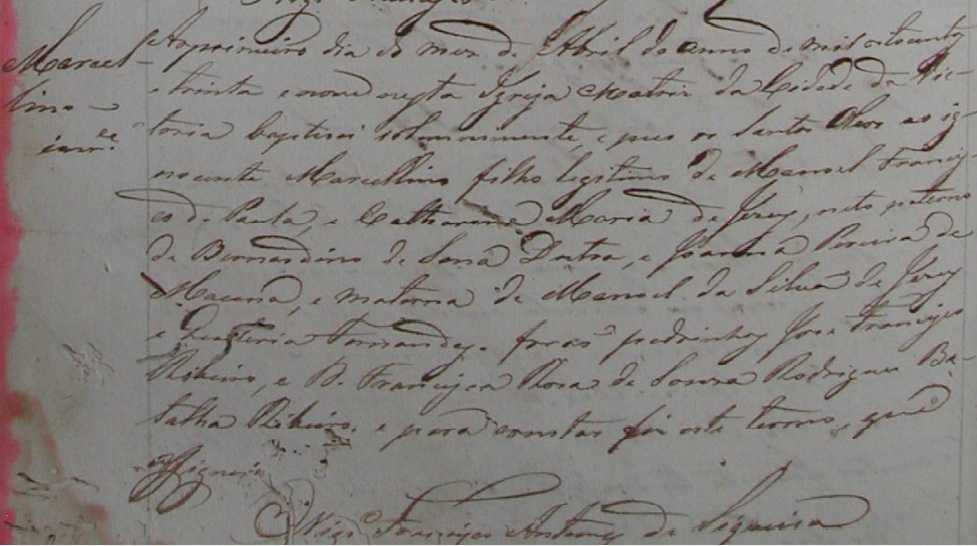 Marcel-
lino
inn.e
Ao primeiro dia do mez de Abril do anno de mil oitocentos
e trinta e nove nesta Igreja Matriz da Cidade da Vic-
toria baptisei solemnemente, e pus os Santos Oleos ao ig-
nocente Marcellino filho legitimo de Manoel Francis
co de Paula, e Catharina Maria de Jezus, neto paterno
de Bernardino de Dutra, e Joanna Pereira de
Macena, e materna de Manoel da Silva de Jezus
e Quiteria Fernandes. foraõ padrinhos Jose Francisco
Ribeiro, e D. Francisca Rosa de Souza Rodrigues Ba
talha Ribeiro. e para constar fiz este termo, que
assignei.
Vigr.o Francisco Antunes de Siqueira